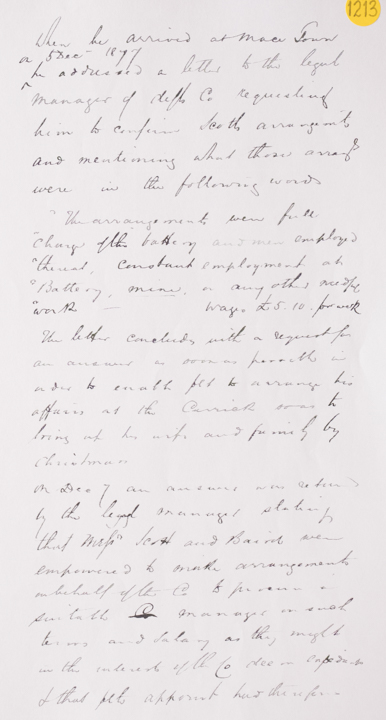 1213
When he arrived at Mace Town
a 5 Dec 1877
he addressed a letter to the legal
manager of defts Co requesting
him to confirm Scotts arrangemts
and mentioning what those arrangts
were in the following words
"The arrangements were full
"charge of the battery and men employed
"thereat, constant employment at
"Battery, mine, or any other needful
"work — wages £5.10. per week
The letter concludes with a request for
an answer as soon as possible in
order to enable plt to arrange his
affairs at the Carrick so as to
bring up his wife and family by
Christmas
On Dec 7 an answer was returned
by the legal manager stating
that Messrs Scott and Baird were
empowered to make arrangements
on behalf of the Co to procure a
suitable manager on such
terms and salary as they might
in the interests of the Co deem
& that plts appointment